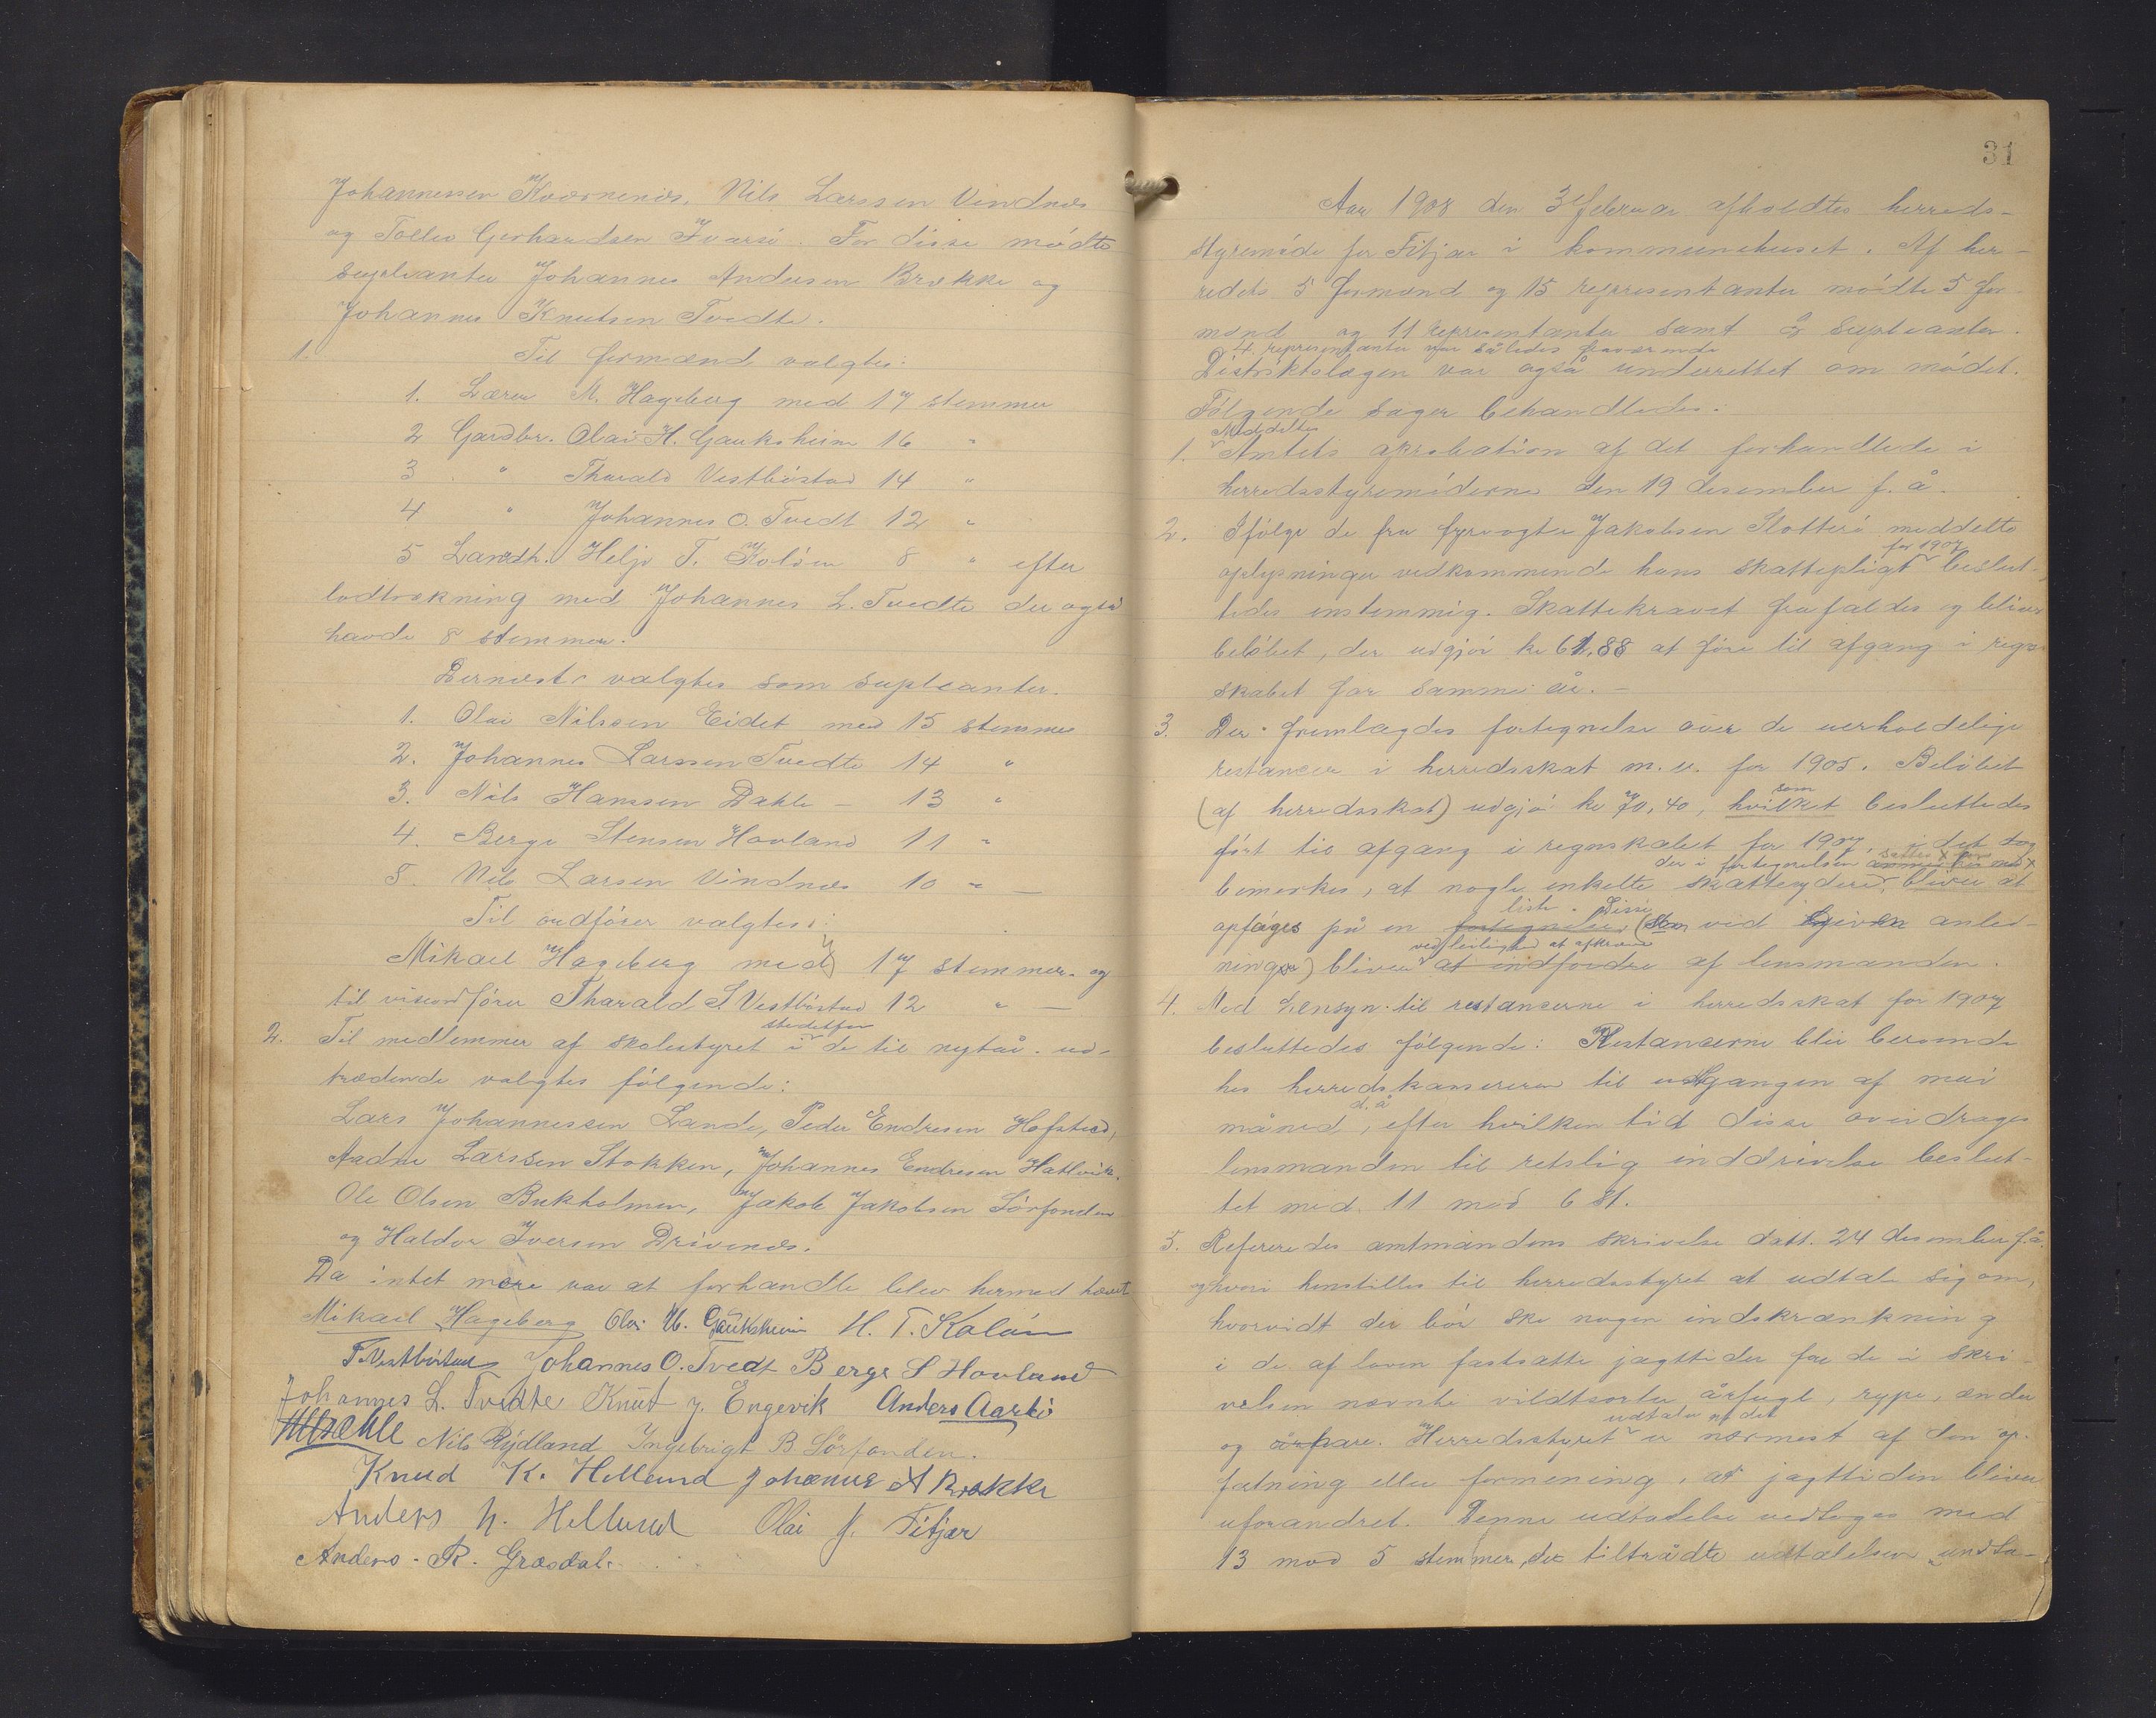 Johannessen Kværnenæs, Nils Larssen Vindnæs
og Tollev Gerhardsen Ivarsö. For disse mødte
supleanter Johannes Andersen Brekke og
Johannes Knutsen Tvedte.
1. Til formænd valgtes:
1. Lærer M. Hageberg med 17 stemmer
2 Gardbr. Olai H. Gauksheim 16 "
3 " Tharald Vestbøstad 14 "
4 " Johannes O. Tvedt 12 "
5 Landh. Helje T. Koløen 8 " efter
lodtrækning med Johannes L. Tvedte der også
havde 8 stemmer.
Dernæst valgtes som supleanter.
1. Olai Nilssen Eidet med 15 stemmer
2. Johannes Larssen Tvedte 14 "
3. Nils Hanssen Dahle – 13 "
4. Berge Stensen Hovland 11 "
5. Nils Larsen Vindnæs 10 " –
Til ordfører valgtes:
Mikael Hageberg med 17 stemmer og
til viseordfører Tharald S. Vestbøstad 12 " –
2. Til medlemmer af skolestyret i stedetfor de til nytår ud-
trædende valgtes følgende:
Lars Johannessen Lande, Peder Endresen Hofstad,
Aadne Larssen Stokken, Johannes Endresen Hatlevik.
Ole Olsen Bukholmen, Jakob Jakobsen Sørfonden
og Haldor Iversen Drivenes.
Da intet mere var at forhandle blev hermed hævet
Mikael Hageberg Olai H. Gauksheim H. T. Koløen
T. Vestbøstad Johannes O. Tvedt Berge S Hovland
Johannes L. Tvedte Knut J. Engevik Anders Aarbø
Nils Rydland Ingebrigt B Sörfonden.
Knud K. Hellund Johannes A Brekke
Anders N. Hellund Olai J. Fitjar
Anders R. Græsdal.
31
Aar 1908 den 3 februar afholdtes herreds-
styremøde for Fitjar i kommunehuset. Af her-
redets 5 formænd og 15 representanter mødte 5 for-
mænd og 11 representanter samt 2 supleanter.
4. representanter var således fraværende
Distriktslægen var også underrettet om mødet.
Følgende sager behandledes.
1. Meddeltes Amtets aprobation af det forhandlede i
herredsstyremøderne den 19 desember f. å.
2. Ifølge de fra fyrvogter Jakobsen Slotterø meddelte
oplysninger vedkommende hans skattepligt for 1907 beslut-
tedes enstemmig. Skattekravet frafaldes og bliver
beløbet, der udgjør kr 61,88 at føre til afgang i regn-
skabet for samme år. –
3. Der fremlagdes fortegnelse over de uerholdelige
restancer i herredsskat m. v. for 1905. Beløbet
(af herredsskat) udgjør kr 70,40, hvilket som besluttedes
ført til afgang i regnskabet for 1907, i det dog
bemerkes, at nogle enkelte skatteydere, der i fortegnelsen bliver at
opføges på en fortegnelse liste. Disse (som ved given anled-
ninger) bliver ved leilighed at afkræve at indfordre af lensmanden.
4. Med hensyn til restanserne i herredsskat for 1907
besluttedes følgende: Restanserne blir beroende
hos herredskassereren til udgangen af mai
måned d. å, efter hvilken tid disse overdrages
lensmanden til retslig inddrivelse beslut-
tet med 11 mod 6 st.
5. Refereredes amtmandens skrivelse datt. 24 desember f. å.
og hvori henstilles til herredsstyret at udtale sig om,
hvorvidt der bør ske nogen indskrænkning
i de af loven fastsatte jagttider for de i skri-
velsen nævnte vildtsorter årfugl, rype, ænder
og hare. Herredsstyret udtaler at det er nærmest af den op-
fatning eller formening, at jagttiden bliver
uforandret. Denne udtalelse vedtoges med
13 mod 5 stemmer, der tiltrådte udtalelsen undta-